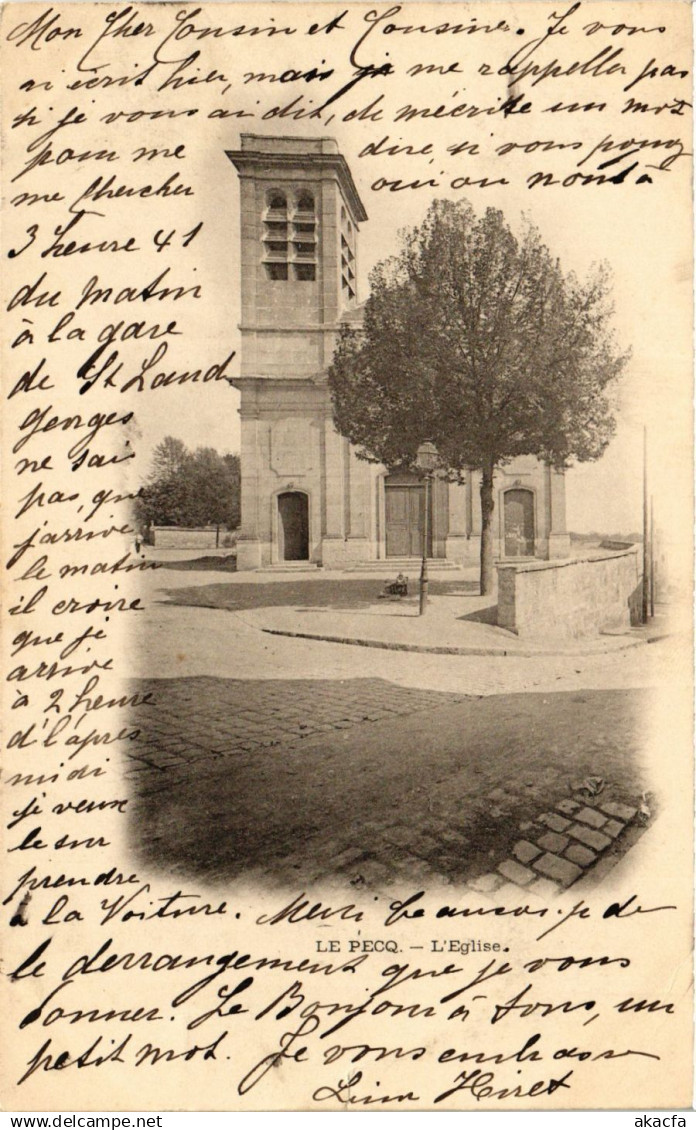 Mon Cher Cousin et Cousine. Je vous
ai écrit hier, mais je me rappeller pas
si je vous ai dit, de mécrite un mot
pour me dire si vous pouvez
me chercher oui ou non à
3 heure 41
du matin
à la gare
de St Land
Georges
ne sais
pas, que
j'arrive
le matin
il croire
que je
arrive
à 2 heure
d'l'après
midi
je veux
le sur
prendre
à la Voiture. Merci beaucoup de
LE PECQ. — L'Eglise.
le derrangement que je vous
donner. Le Bonjour à tous, un
petit mot. Je vous embrasse
Hiret
www.akacfa.com
akacfa